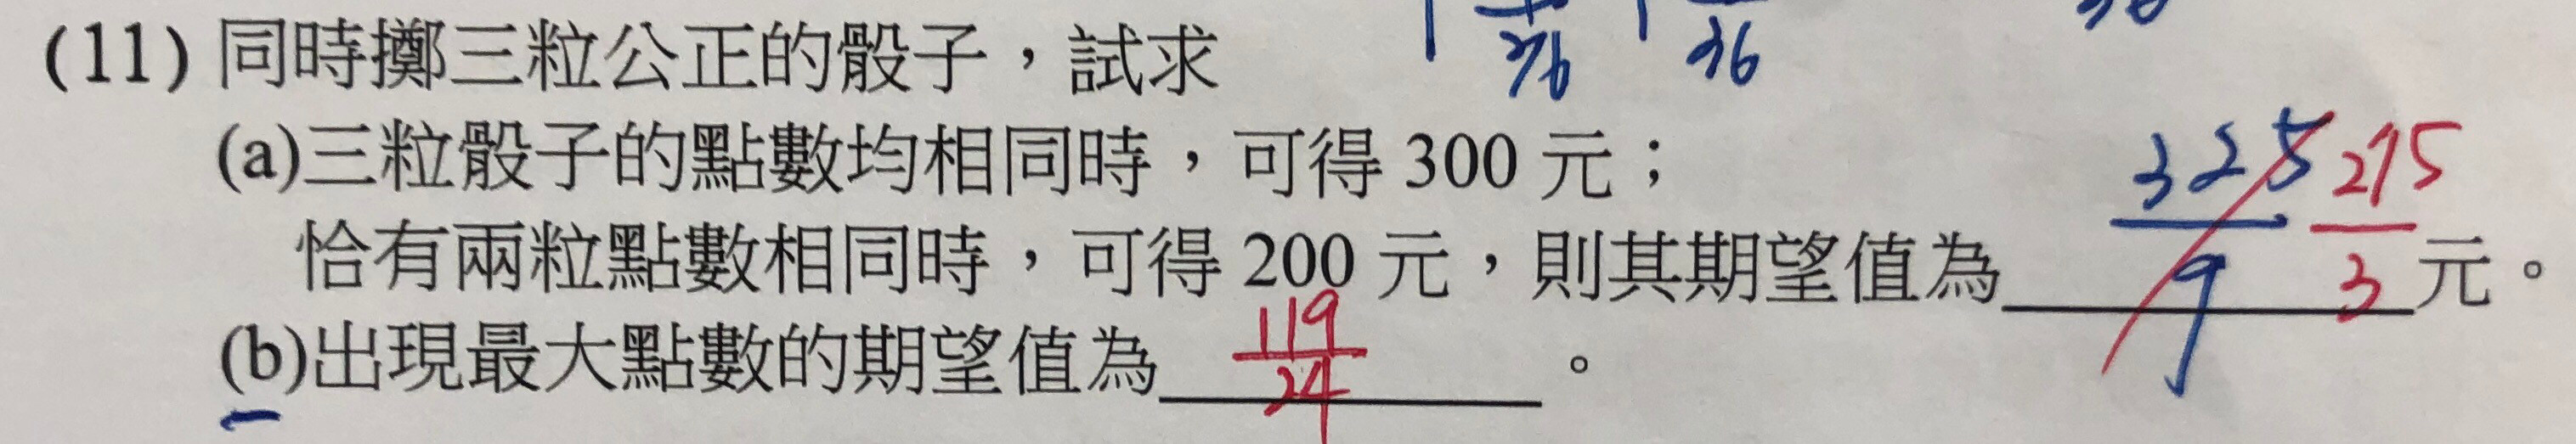 (11) 同時擲三粒公正的骰子，試求
(a)三粒骰子的點數均相同時，可得 300 元；
恰有兩粒點數相同時，可得 200 元，則其期望值為 325/9 275/3 元。
(b)出現最大點數的期望值為 119/24 。